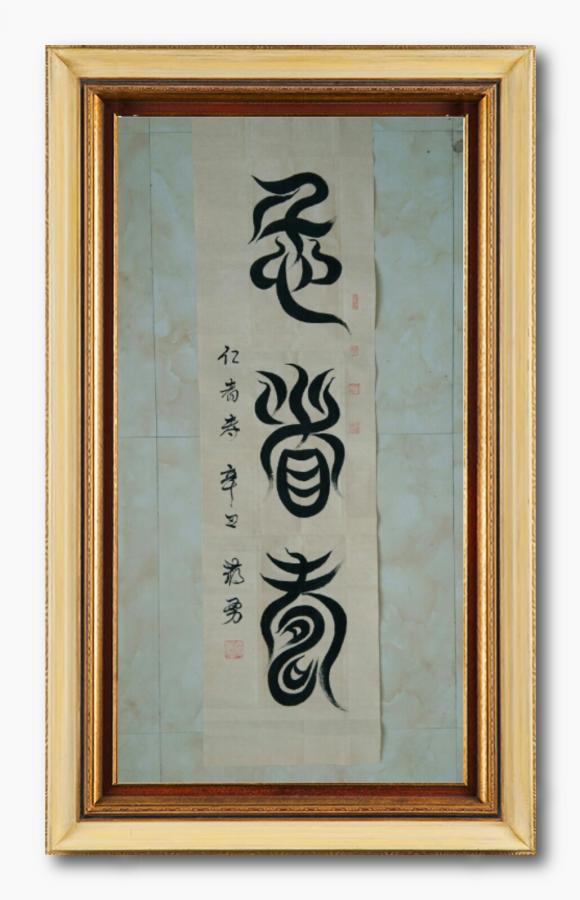 仁者寿
仁者寿 辛丑 蒋勇